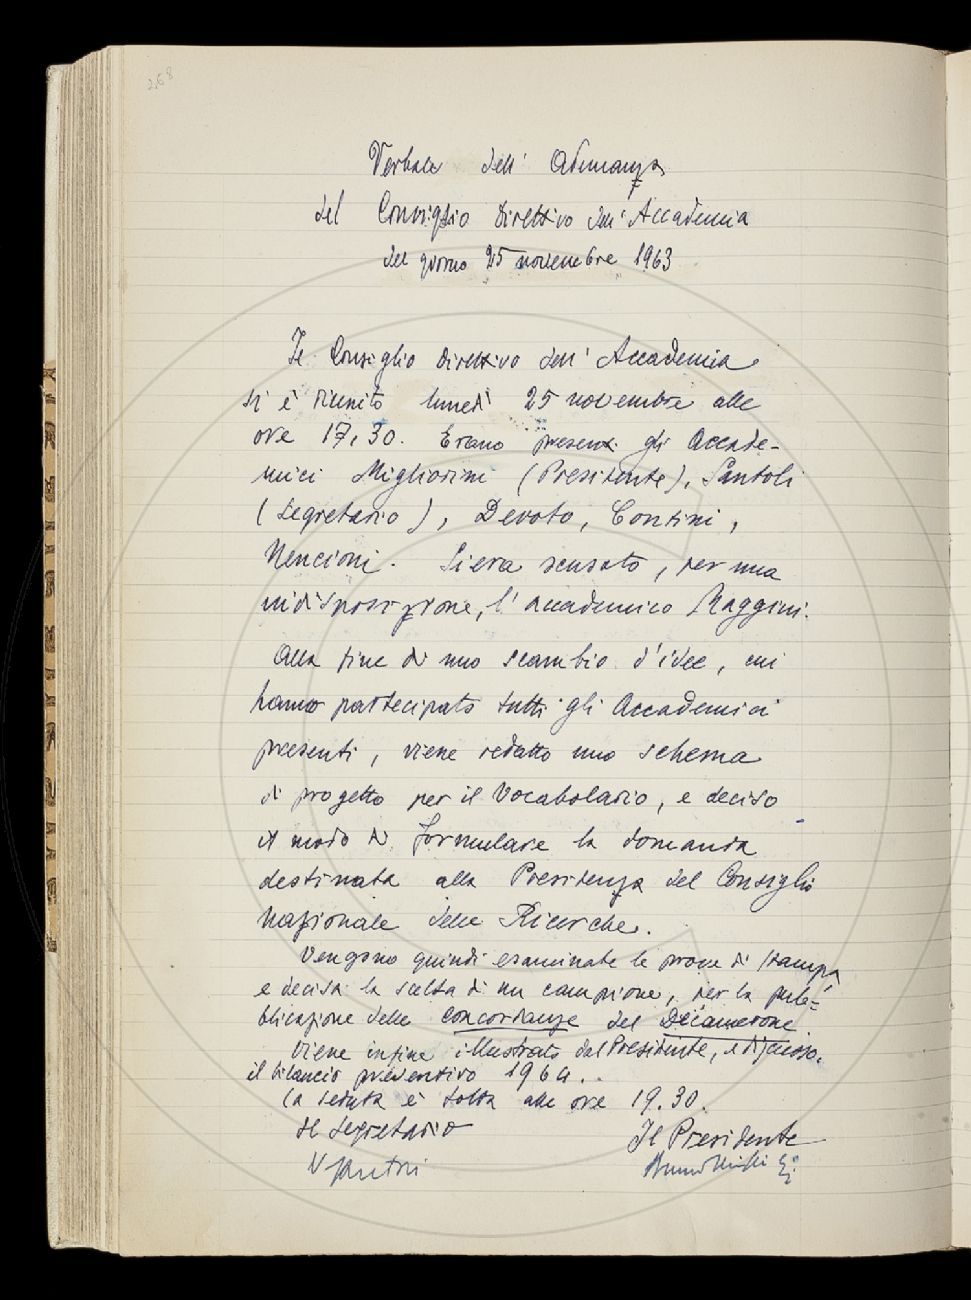 268
Verbale dell' Adunanza
del Consiglio Direttivo dell' Accademia
del giorno 25 novembre 1963
Il Consiglio Direttivo dell' Accademia
si è riunito lunedì 25 novembre alle
ore 17,30. Erano presenti gli Accade-
mici Migliorini (Presidente), Santoli
(Segretario), Devoto, Contini,
Nencioni. Si era scusato, per una
indisposizione, l'accademico Maggini.
Alla fine di uno scambio d'idee, cui
hanno partecipato tutti gli Accademici
presenti, viene redatto uno schema
di progetto per il Vocabolario, e deciso
il modo di formulare la domanda
destinata alla Presidenza del Consiglio
Nazionale delle Ricerche.
Vengono quindi esaminate le prove di stampa
e decisa la scelta di un campione, per la pub-
blicazione delle concordanze del Decamerone.
Viene infine illustrato dal Presidente, e discusso,
il bilancio preventivo 1964.
La seduta è tolta alle ore 19.30.
Il Segretario Il Presidente
V Santoli Bruno Migliorini